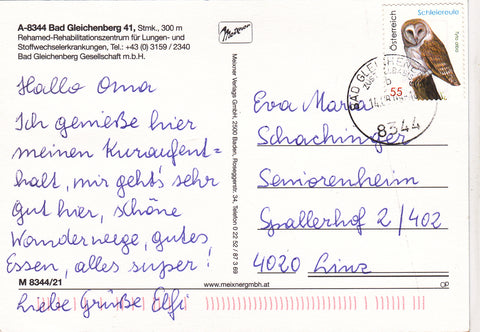 A-8344 Bad Gleichenberg 41, Stmk., 300 m
Rehamed-Rehabilitationszentrum für Lungen- und
Stoffwechselerkrankungen, Tel.: +43 (0) 3159 / 2340
Bad Gleichenberg Gesellschaft m.b.H.
Hallo Oma
Ich genieße hier
meinen Kuraufent=
halt, mir geht's sehr
gut hier, schöne
Wanderwege, gutes
Essen, alles super!
Liebe Grüße Elfi
M 8344/21
Meixner
Meixner Verlags GmbH, 2500 Baden, Roseggerstr. 34, Telefon 0 22 52 / 87 3 69
www.meixnergmbh.at
Schleiereule
Österreich
Tyto alba
55
BAD GLEICHENBERG
8344
Eva Maria
Schachinger
Seniorenheim
Spallerhof 2/402
4020 Linz